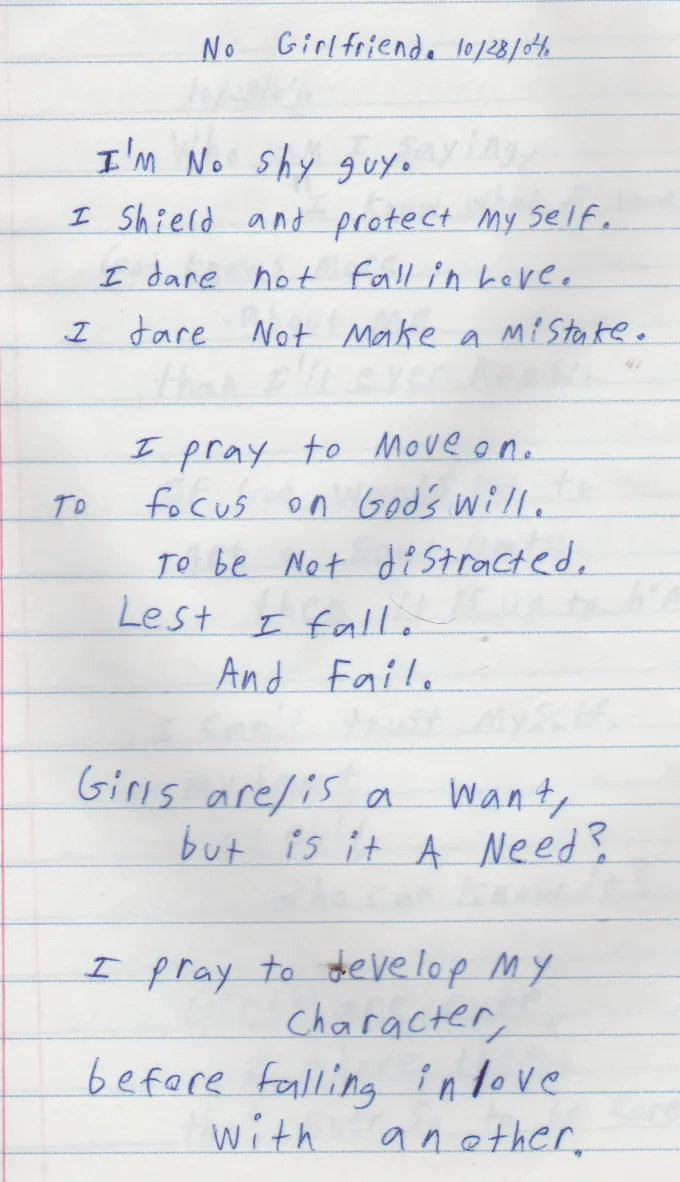 No Girlfriend. 10/28/04
I'M No shy guy.
I Shield and protect My Self.
I dare not fall in Love.
I dare Not Make a Mistake.
I pray to Move on.
To focus on God's will.
To be Not distracted.
Lest I fall.
And Fail.
Girls are/is a want,
but is it A Need?
I pray to develop My
Character,
before falling in love
with another.